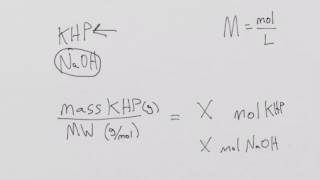 KHP←
M = mol/L
NaOH
mass KHP(g) / MW (g/mol) = X mol KHP
X mol NaOH